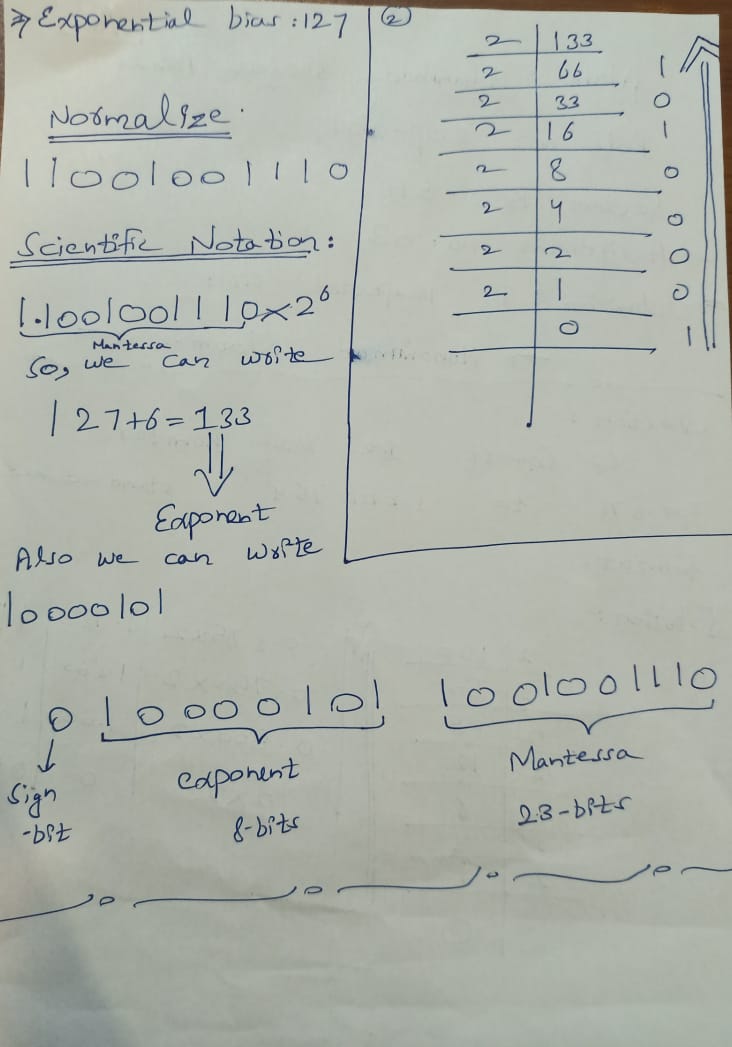 ⇒ Exponential bias : 127
Normalize.
11001001110
Scientific Notation:
1.1001001110×2⁶
Mantessa
So, we can write
127+6=133
Exponent
Also we can write
10000101
②
2 | 133
2 | 66 1
2 | 33 0
2 | 16 1
2 | 8 0
2 | 4 0
2 | 2 0
2 | 1 0
0 1
0 10000101 1001001110
Sign
-bit
exponent
8-bits
Mantessa
23-bits